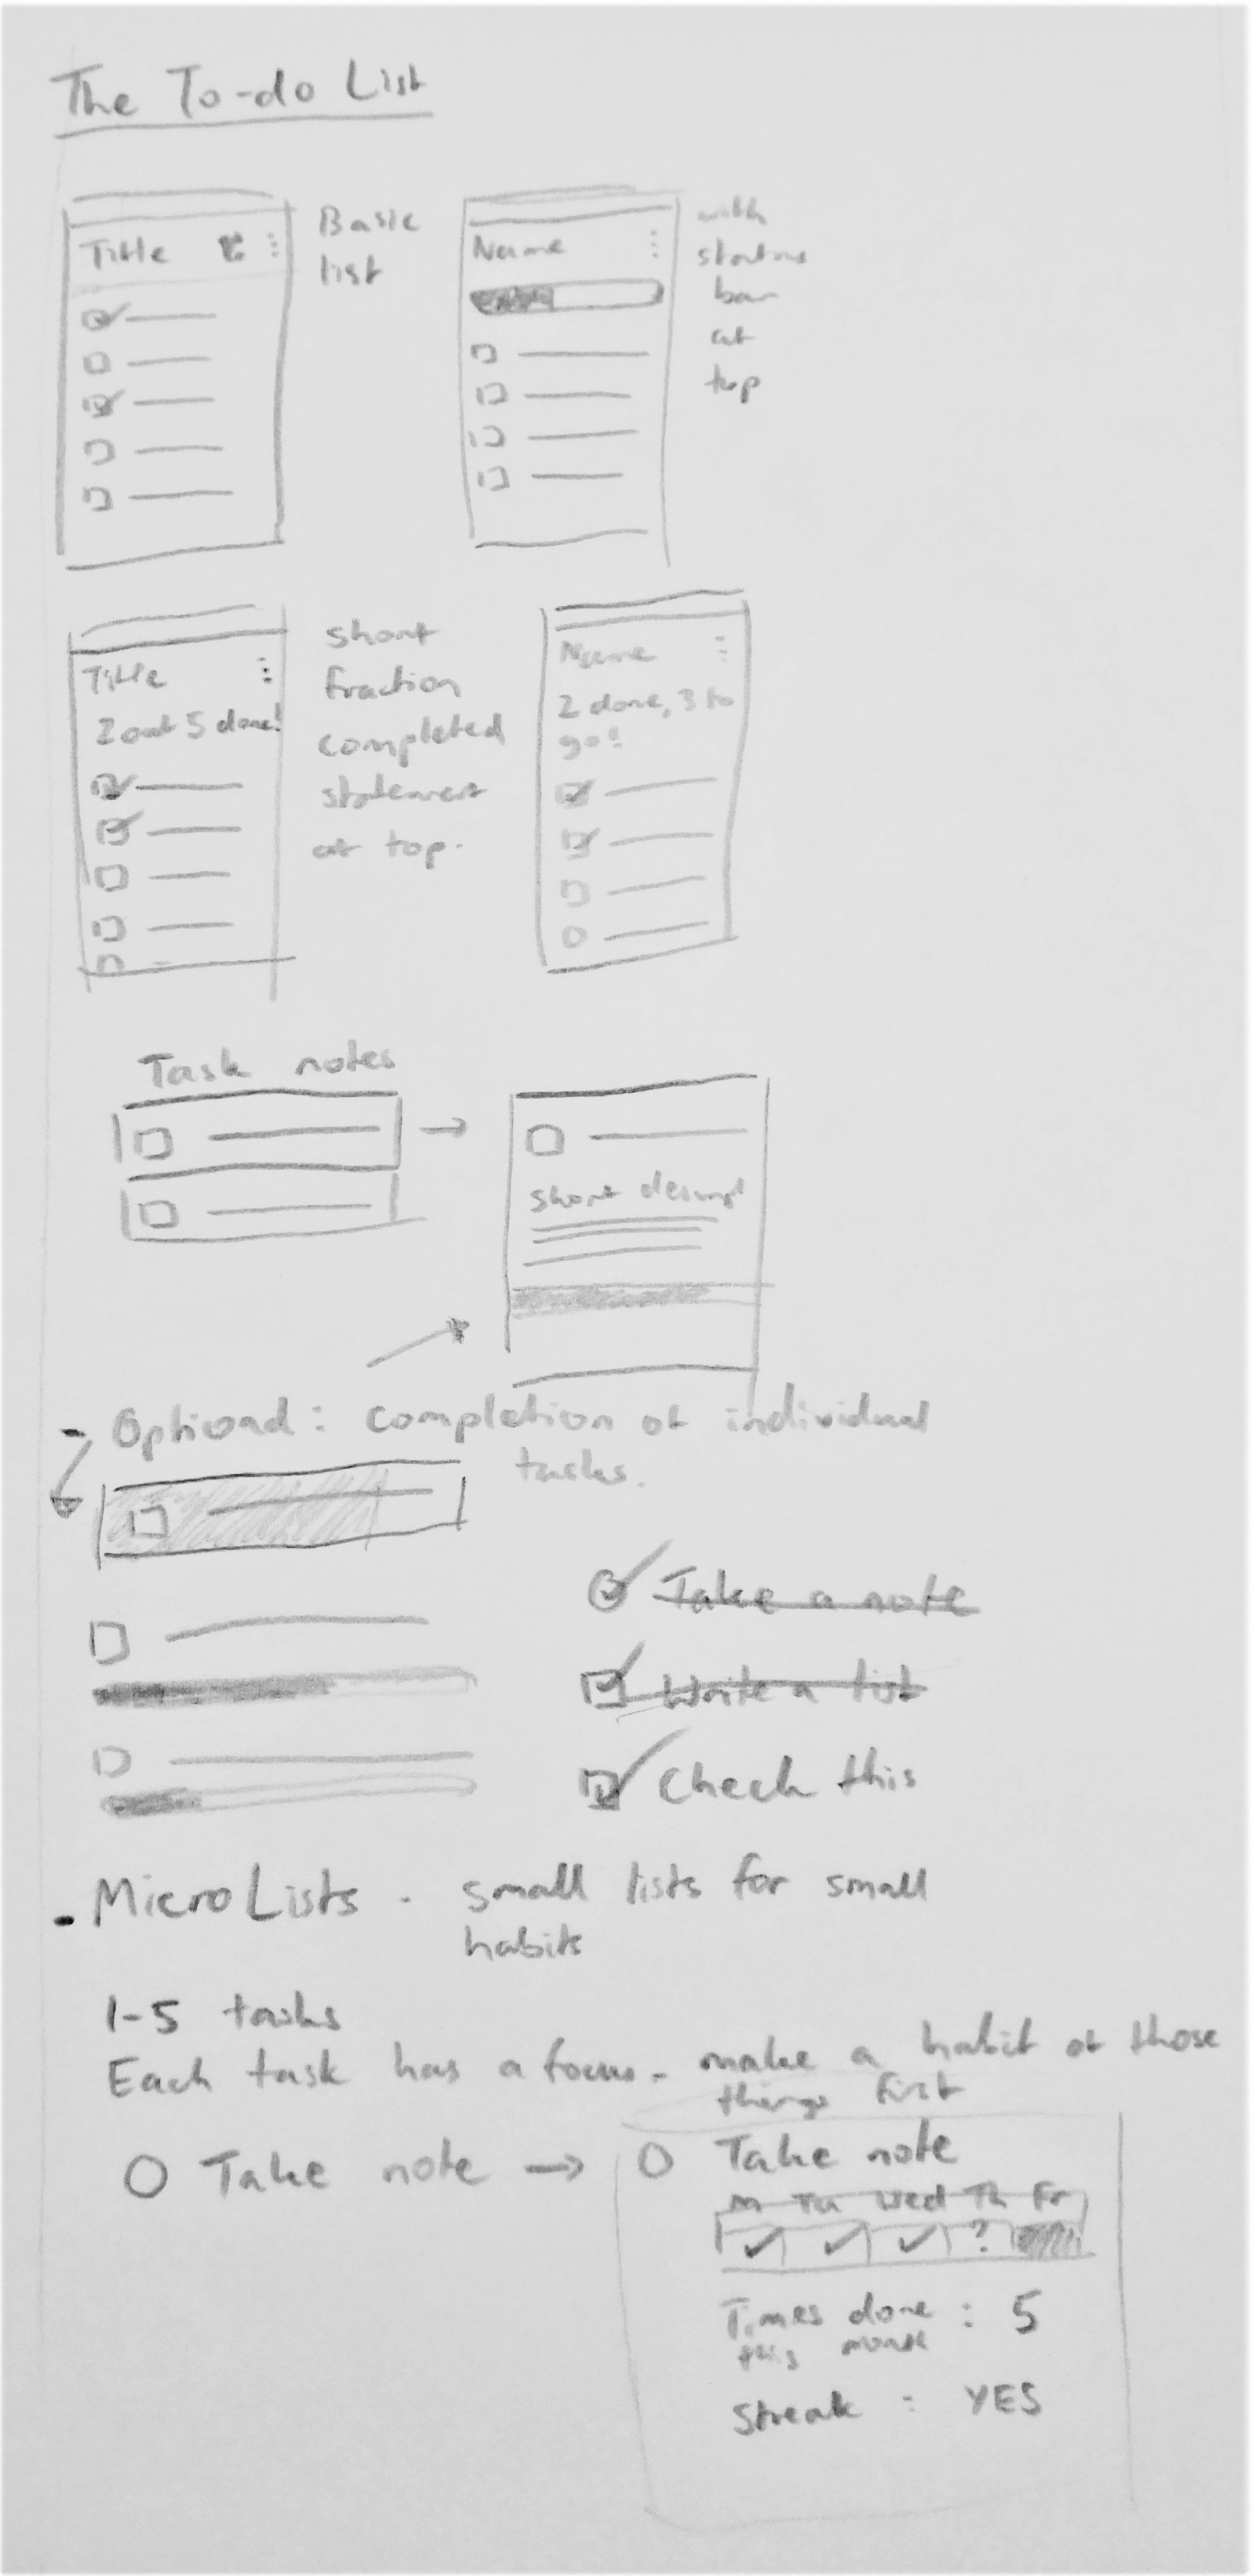 The To-do List
Title
Basic
list
Name
with
status
bar
at
top
Title
2 out 5 done!
short
fraction
completed
statement
at top.
Name
2 done, 3 to
go!
Task notes
short descript
- Optional: completion of individual
tasks.
Take a note
Write a list
Check this
- MicroLists - small lists for small
habits
1-5 tasks
Each task has a focus - make a habit of those
things first
Take note →
Take note
M Tu Wed Th Fr
?
Times done : 5
this month
Streak : YES